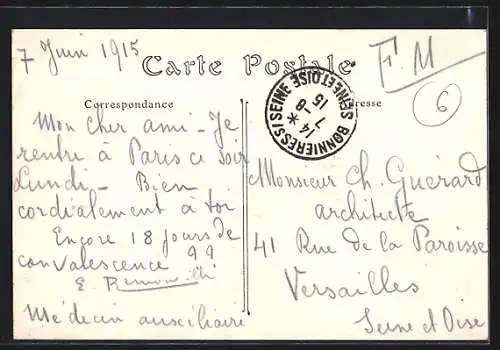 7 Juin 1915
Carte Postale
F. M
6
Correspondance
Adresse
BONNIERES S/ SEINE SEINE ET OISE
* 7-8
14
15
Mon cher ami - Je
rentre à Paris ce soir
Lundi - Bien
cordialement à toi
Encore 18 jours de
convalescence !!
E.
Médecin auxiliaire
Monsieur Ch. Guérard
architecte
41 Rue de la Paroisse
Versailles
Seine et Oise